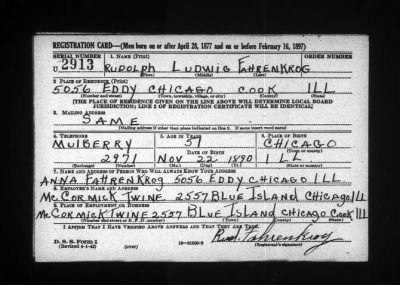 REGISTRATION CARD—(Men born on or after April 28, 1877 and on or before February 16, 1897)
SERIAL NUMBER 1. NAME (Print) ORDER NUMBER
U 2913 RUDOLPH LUDWIG FAHRENKROG
(First) (Middle) (Last)
2. PLACE OF RESIDENCE (Print)
5056 EDDY CHICAGO COOK ILL
(Number and street) (Town, township, village, or city) (County) (State)
[THE PLACE OF RESIDENCE GIVEN ON THE LINE ABOVE WILL DETERMINE LOCAL BOARD
JURISDICTION; LINE 2 OF REGISTRATION CERTIFICATE WILL BE IDENTICAL]
3. MAILING ADDRESS
SAME
[Mailing address if other than place indicated on line 2. If same insert word same]
4. TELEPHONE 5. AGE IN YEARS 6. PLACE OF BIRTH
MULBERRY 51 CHICAGO
DATE OF BIRTH (Town or county)
2971 NOV 22 1890 ILL
(Exchange) (Number) (Mo.) (Day) (Yr.) (State or country)
7. NAME AND ADDRESS OF PERSON WHO WILL ALWAYS KNOW YOUR ADDRESS
ANNA FAHRENKROG 5056 EDDY CHICAGO ILL
8. EMPLOYER'S NAME AND ADDRESS
MCCORMICK TWINE 2557 BLUE ISLAND CHICAGO ILL
9. PLACE OF EMPLOYMENT OR BUSINESS
MCCORMICK TWINE 2557 BLUE ISLAND CHICAGO COOK ILL
(Number and street or R. F. D. number) (Town) (County) (State)
I AFFIRM THAT I HAVE VERIFIED ABOVE ANSWERS AND THAT THEY ARE TRUE.
D. S. S. Form 1
(Revised 4-1-42) (over) Rud. Fahrenkrog
(Registrant's signature)